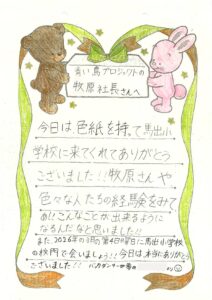 青い鳥プロジェクトの
牧原社長さんへ
今日は色紙を持て馬出小
学校に来てくれてありがとう
ございました!!牧原さんや
色々な人たちの経験会をみて
こんなことが出来るように
なるんだなと思いました!!
また、2026年の3月の第4日曜日に馬出小学校
の校門で会いましょう!!今日は本当にありがとう
ございました!!